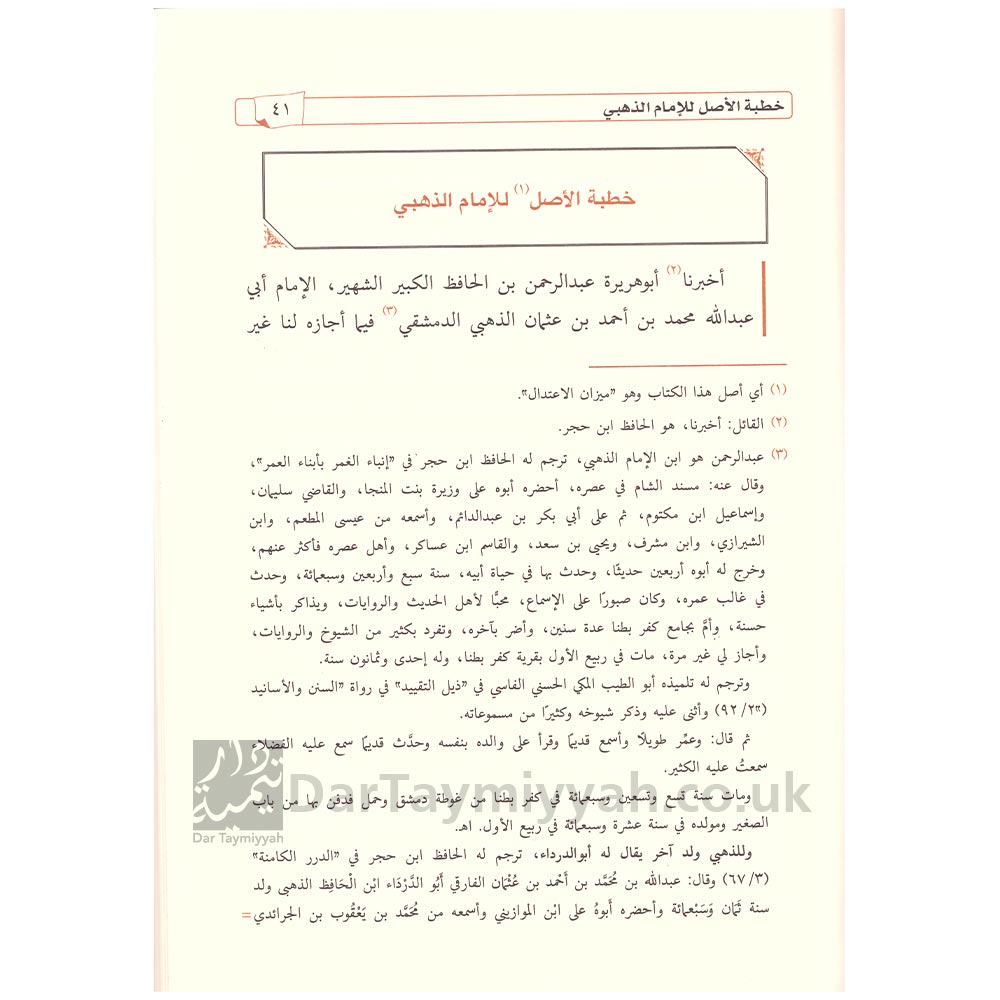 خطبة الأصل للإمام الذهبي
٤١
خطبة الأصل(١) للإمام الذهبي
أخبرنا(٢) أبوهريرة عبدالرحمن بن الحافظ الكبير الشهير، الإمام أبي
عبدالله محمد بن أحمد بن عثمان الذهبي الدمشقي(٣) فيما أجازه لنا غير
(١) أي أصل هذا الكتاب وهو «ميزان الاعتدال».
(٢) القائل: أخبرنا، هو الحافظ ابن حجر.
(٣) عبدالرحمن هو ابن الإمام الذهبي، ترجم له الحافظ ابن حجر في «إنباء الغمر بأبناء العمر»،
وقال عنه: مسند الشام في عصره، أحضره أبوه على وزيرة بنت المنجا، والقاضي سليمان،
وإسماعيل ابن مكتوم، ثم على أبي بكر بن عبدالدائم، وأسمعه من عيسى المطعم، وابن
الشيرازي، وابن مشرف، ويحيى بن سعد، والقاسم ابن عساكر، وأهل عصره فأكثر عنهم،
وخرج له أبوه أربعين حديثًا، وحدث بها في حياة أبيه، سنة سبع وأربعين وسبعمائة، وحدث
في غالب عمره، وكان صبورًا على الإسماع، محبًّا لأهل الحديث والروايات، ويذاكر بأشياء
حسنة، وأمَّ بجامع كفر بطنا عدة سنين، وأضر بآخره، وتفرد بكثير من الشيوخ والروايات،
وأجاز لي غير مرة، مات في ربيع الأول بقرية كفر بطنا، وله إحدى وثمانون سنة.
وترجم له تلميذه أبو الطيب المكي الحسني الفاسي في «ذيل التقييد» في رواة «السنن والأسانيد
(٩٢/٢») وأثنى عليه وذكر شيوخه وكثيرًا من مسموعاته.
ثم قال: وعمِّر طويلًا وأسمع قديمًا وقرأ على والده بنفسه وحدَّث قديمًا سمع عليه الفضلاء
سمعتُ عليه الكثير.
ومات سنة تسع وتسعين وسبعمائة في كفر بطنا من غوطة دمشق وحمل فدفن بها من باب
الصغير ومولده في سنة عشرة وسبعمائة في ربيع الأول. اهـ.
وللذهبي ولد آخر يقال له أبوالدرداء، ترجم له الحافظ ابن حجر في «الدرر الكامنة»
(٦٧/٣) وقال: عبدالله بن مُحَمَّد بن أَحْمد بن عُثْمَان الفارقي أَبُو الدَّرْدَاء ابْن الْحَافِظ الذهبى ولد
سنة ثَمَان وَسَبْعمائة وأحضره أَبوهُ على ابْن الموازيني وأسمعه من مُحَمَّد بن يَعْقُوب بن الجرائدي =
دار تيمية
Dar Taymiyyah
DarTaymiyyah.co.uk